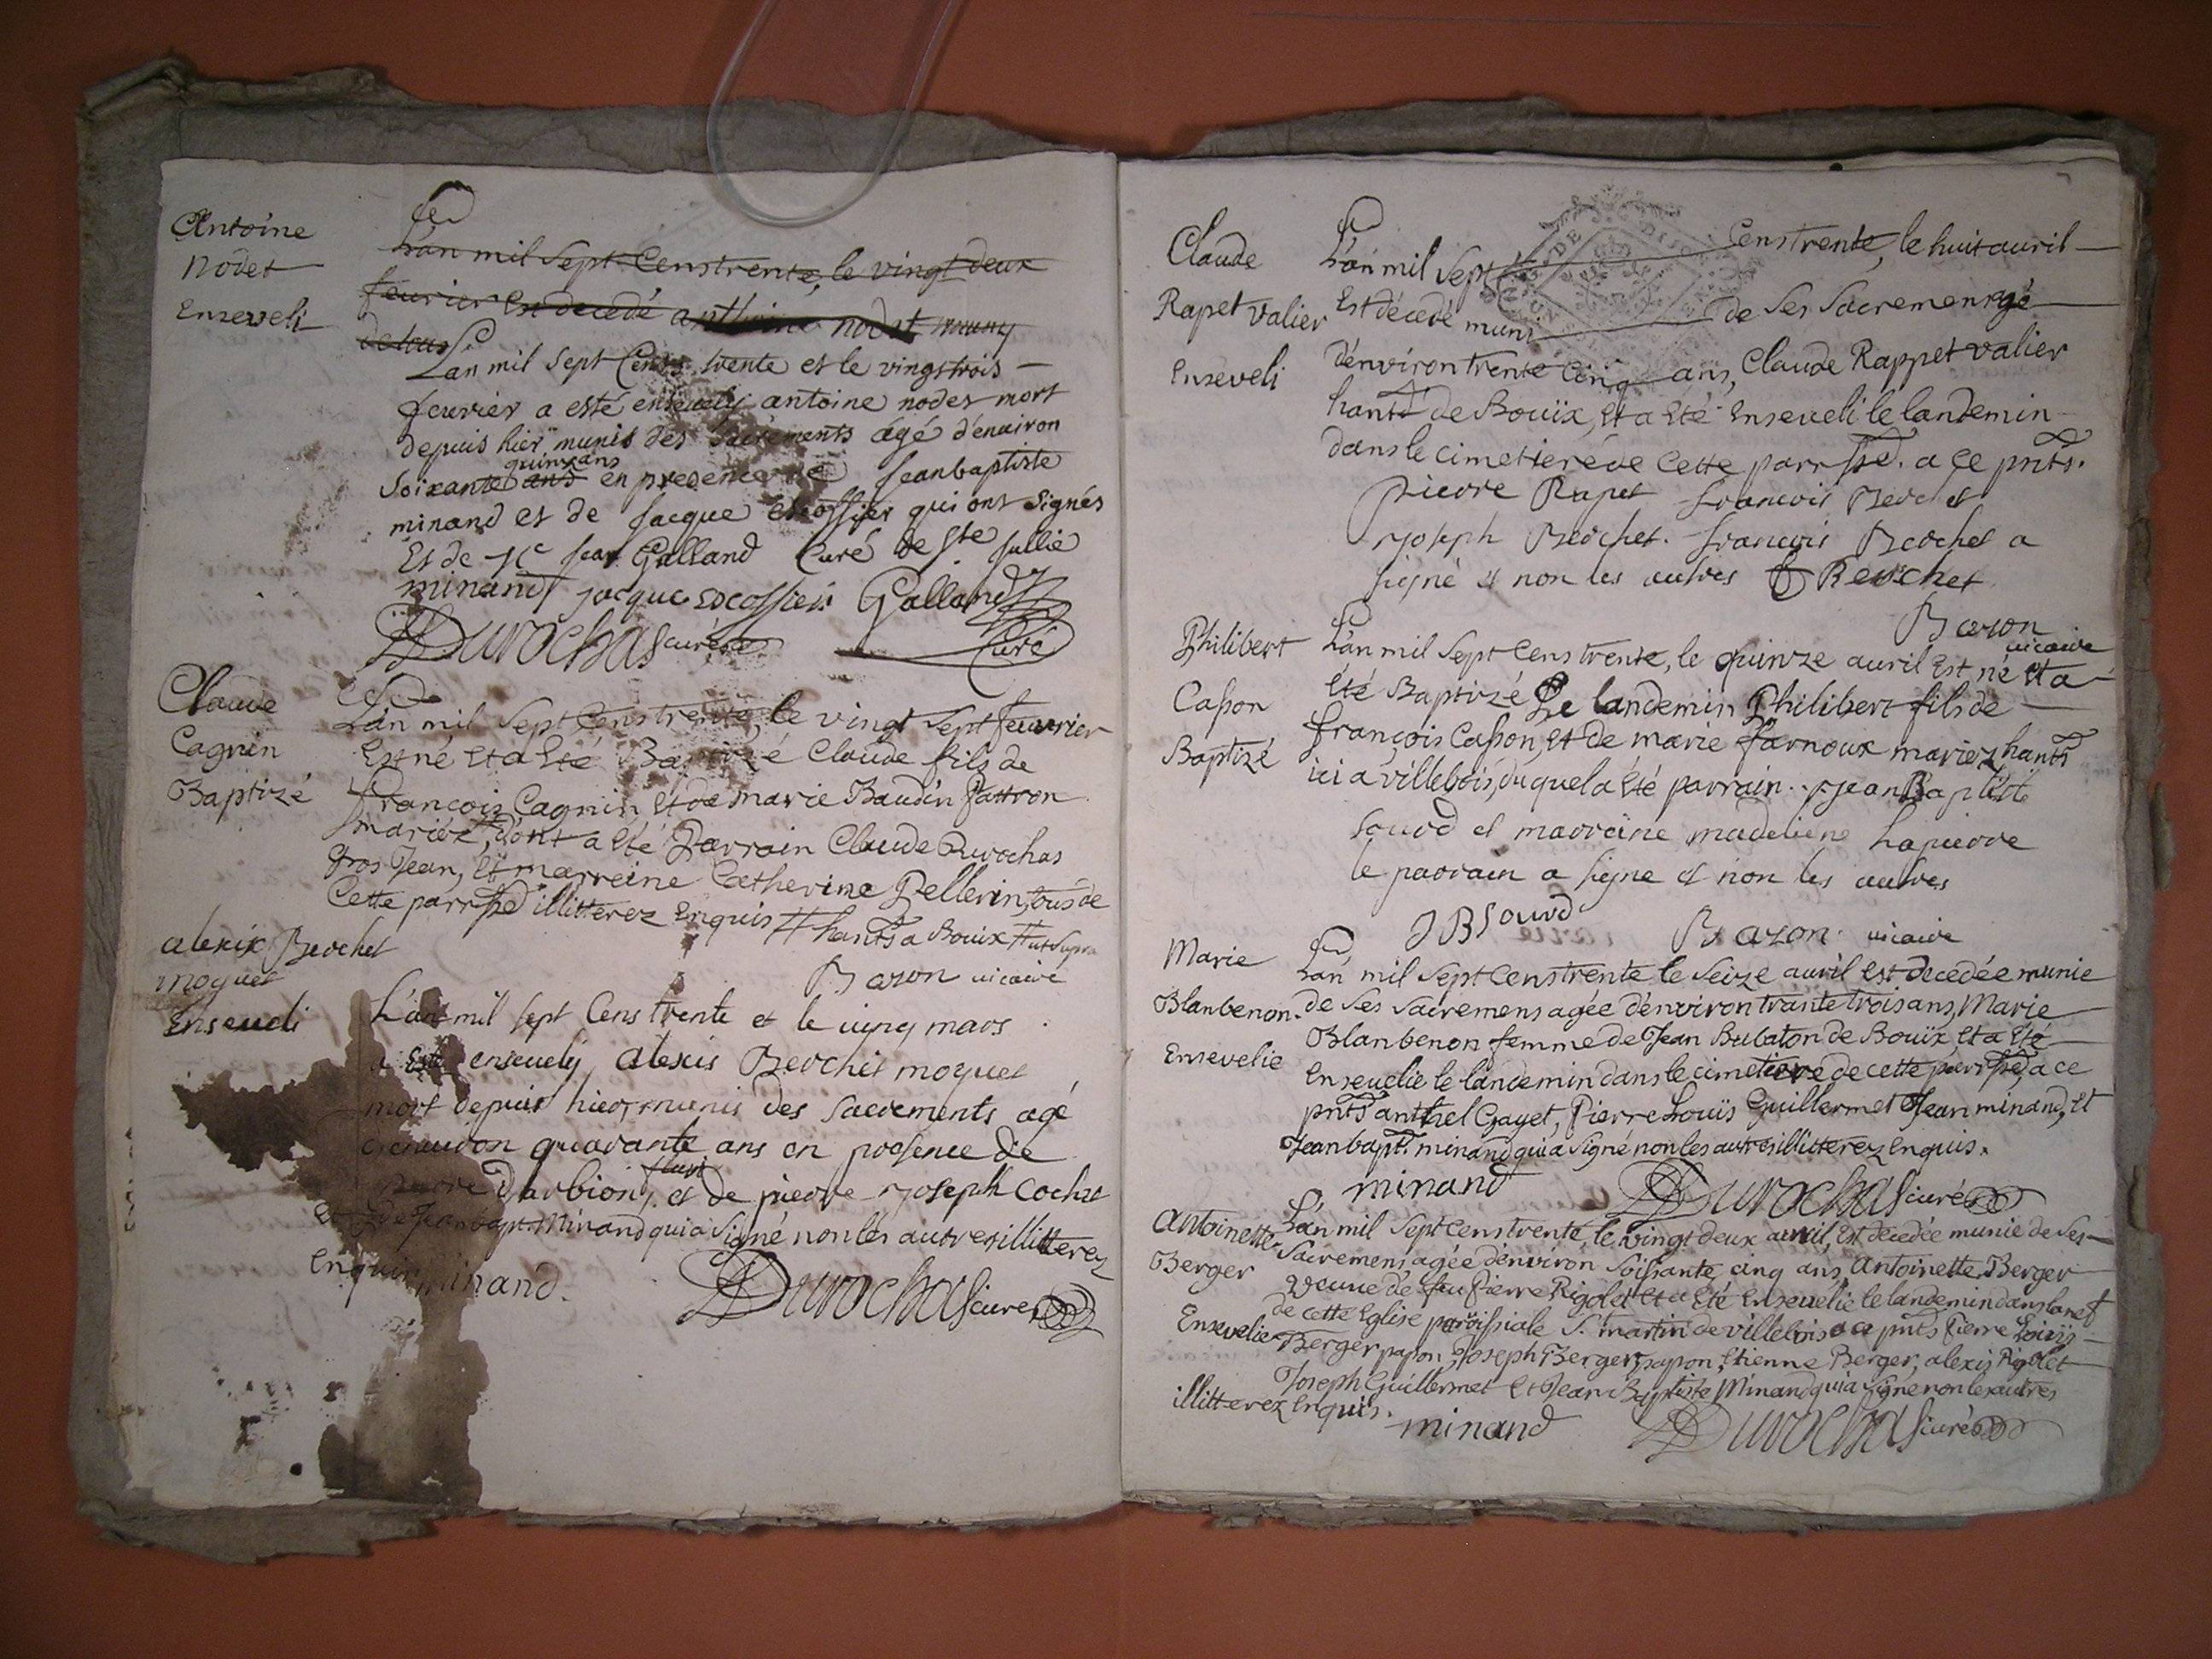 Antoine
Nodet
Enseveli
L'an mil Sept Cens trente, le vingt deux
feurier Est decedé anthoine nodet muny
de tous
L'an mil sept Cents trente et le vingstrois
feurier a esté enseuely antoine nodet mort
depuis hier munis des sacrements agé d'enuiron
quinz ans
soixante ans en presence de Jeanbaptiste
minand et de Jacque escossier qui ont signés
Et de Jean Galland Curé de Ste Jullie
minand jacque Galland
Durochas curé Curé
Claude
Cagnin
Baptizé
L'an mil Sept Cens trente, le vingt Sept feuvrier
Est né Et a Eté Baptizé Claude fils de
François Cagnin Et de marie Baudin Pattron
mariéz, dont a Eté Parrain Claude Durochas
Gros Jean, Et marreine Catherine Pellerin, tous de
Cette parrsse illitterez Enquis # hants a Bouix # ut Supra
Bazon uicaire
alexix Brochet
moquet
Enseueli
L'an mil sept Cens trente et le cinq mars
a Esté enseuely Alexis Brochet moquet
mort depuis hier, munis des sacrements agé
d'enuiron quarante ans en presence de
pierre Darbion, et de pierre joseph Cochet
et de Jean bapt. Minand qui a Signé non les autres illitterez
Enquis minand.
Durochas curé
Claude
Rapet valier
Enseveli
L'an mil Sept Cens trente, le huit auril
Est décedé muni de Ses Sacremens agé
d'environ trente Cinq ans, Claude Rappet valier
hantt de Bouix, Et a Eté Enseveli le landemin
dans le cimetiere de Cette parrsse. a Ce pnts.
pierre Rapet francois Brochet
joseph Brochet. francois Brochet a
signé et non les autres Brochet
Bazon
uicaire
Philibert
Casson
Baptizé
L'an mil Sept Cens trente, le quinze auril Est né Et a
Eté Baptizé Le landemin Philibert fils de
François Casson, Et de marie farnoux mariez hants
ici a villebois, duquel a Eté parrain. jean Baptiste
sourd et marraine madeliene Lapierre
le parrain a signe et non les autres
JB Sourd Bazon uicaire
Marie
Blanbenon.
Ensevelie
L'an mil Sept Cens trente le Seize auril Est decedée munie
de Ses Sacremens agée d'environ trante trois ans, Marie
Blanbenon femme de Jean Bubaton de Bouix, Et a Eté
Enseuelie le landemin dans le cimetiere de cette parrsse, a ce
pnts anthel Gayet, Pierre Louis Guillermet Jean minand, Et
Jean bapt. minand qui a Signé non les autres illitterez Enquis.
minand Durochas curé
Antoinette
Berger
Ensevelie
L'an mil Sept Cens trente, le vingt deux auril, Est decedée munie de Ses
Sacremens, agée denviron Soissante cinq ans Antoinette Berger
Veuue de feu Pierre Rigolet Et a Eté Enseuelie le landemin dans la nef
de cette Eglise paroissiale S. martin de villebois a ce pnts Pierre Loüis
Berger papon, Joseph Berger papon, Etienne Berger, alexis Rigolet
Joseph Guillermet Et Jean Baptiste Minand qui a Signé non les autres
illitterez Enquis. minand Durochas curé